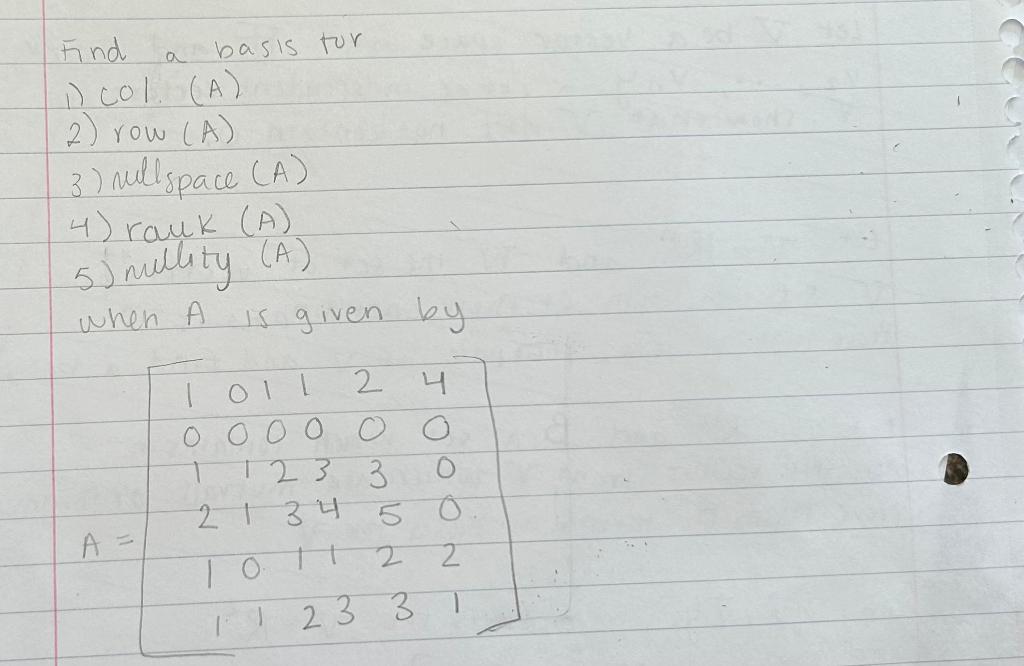 Find a basis for
1) col. (A)
2) row (A)
3) nullspace (A)
4) rank (A)
5) nullity (A)
when A is given by
1 0 1 1 2 4
0 0 0 0 0 0
1 1 2 3 3 0
2 1 3 4 5 0
A =
1 0 1 1 2 2
1 1 2 3 3 1